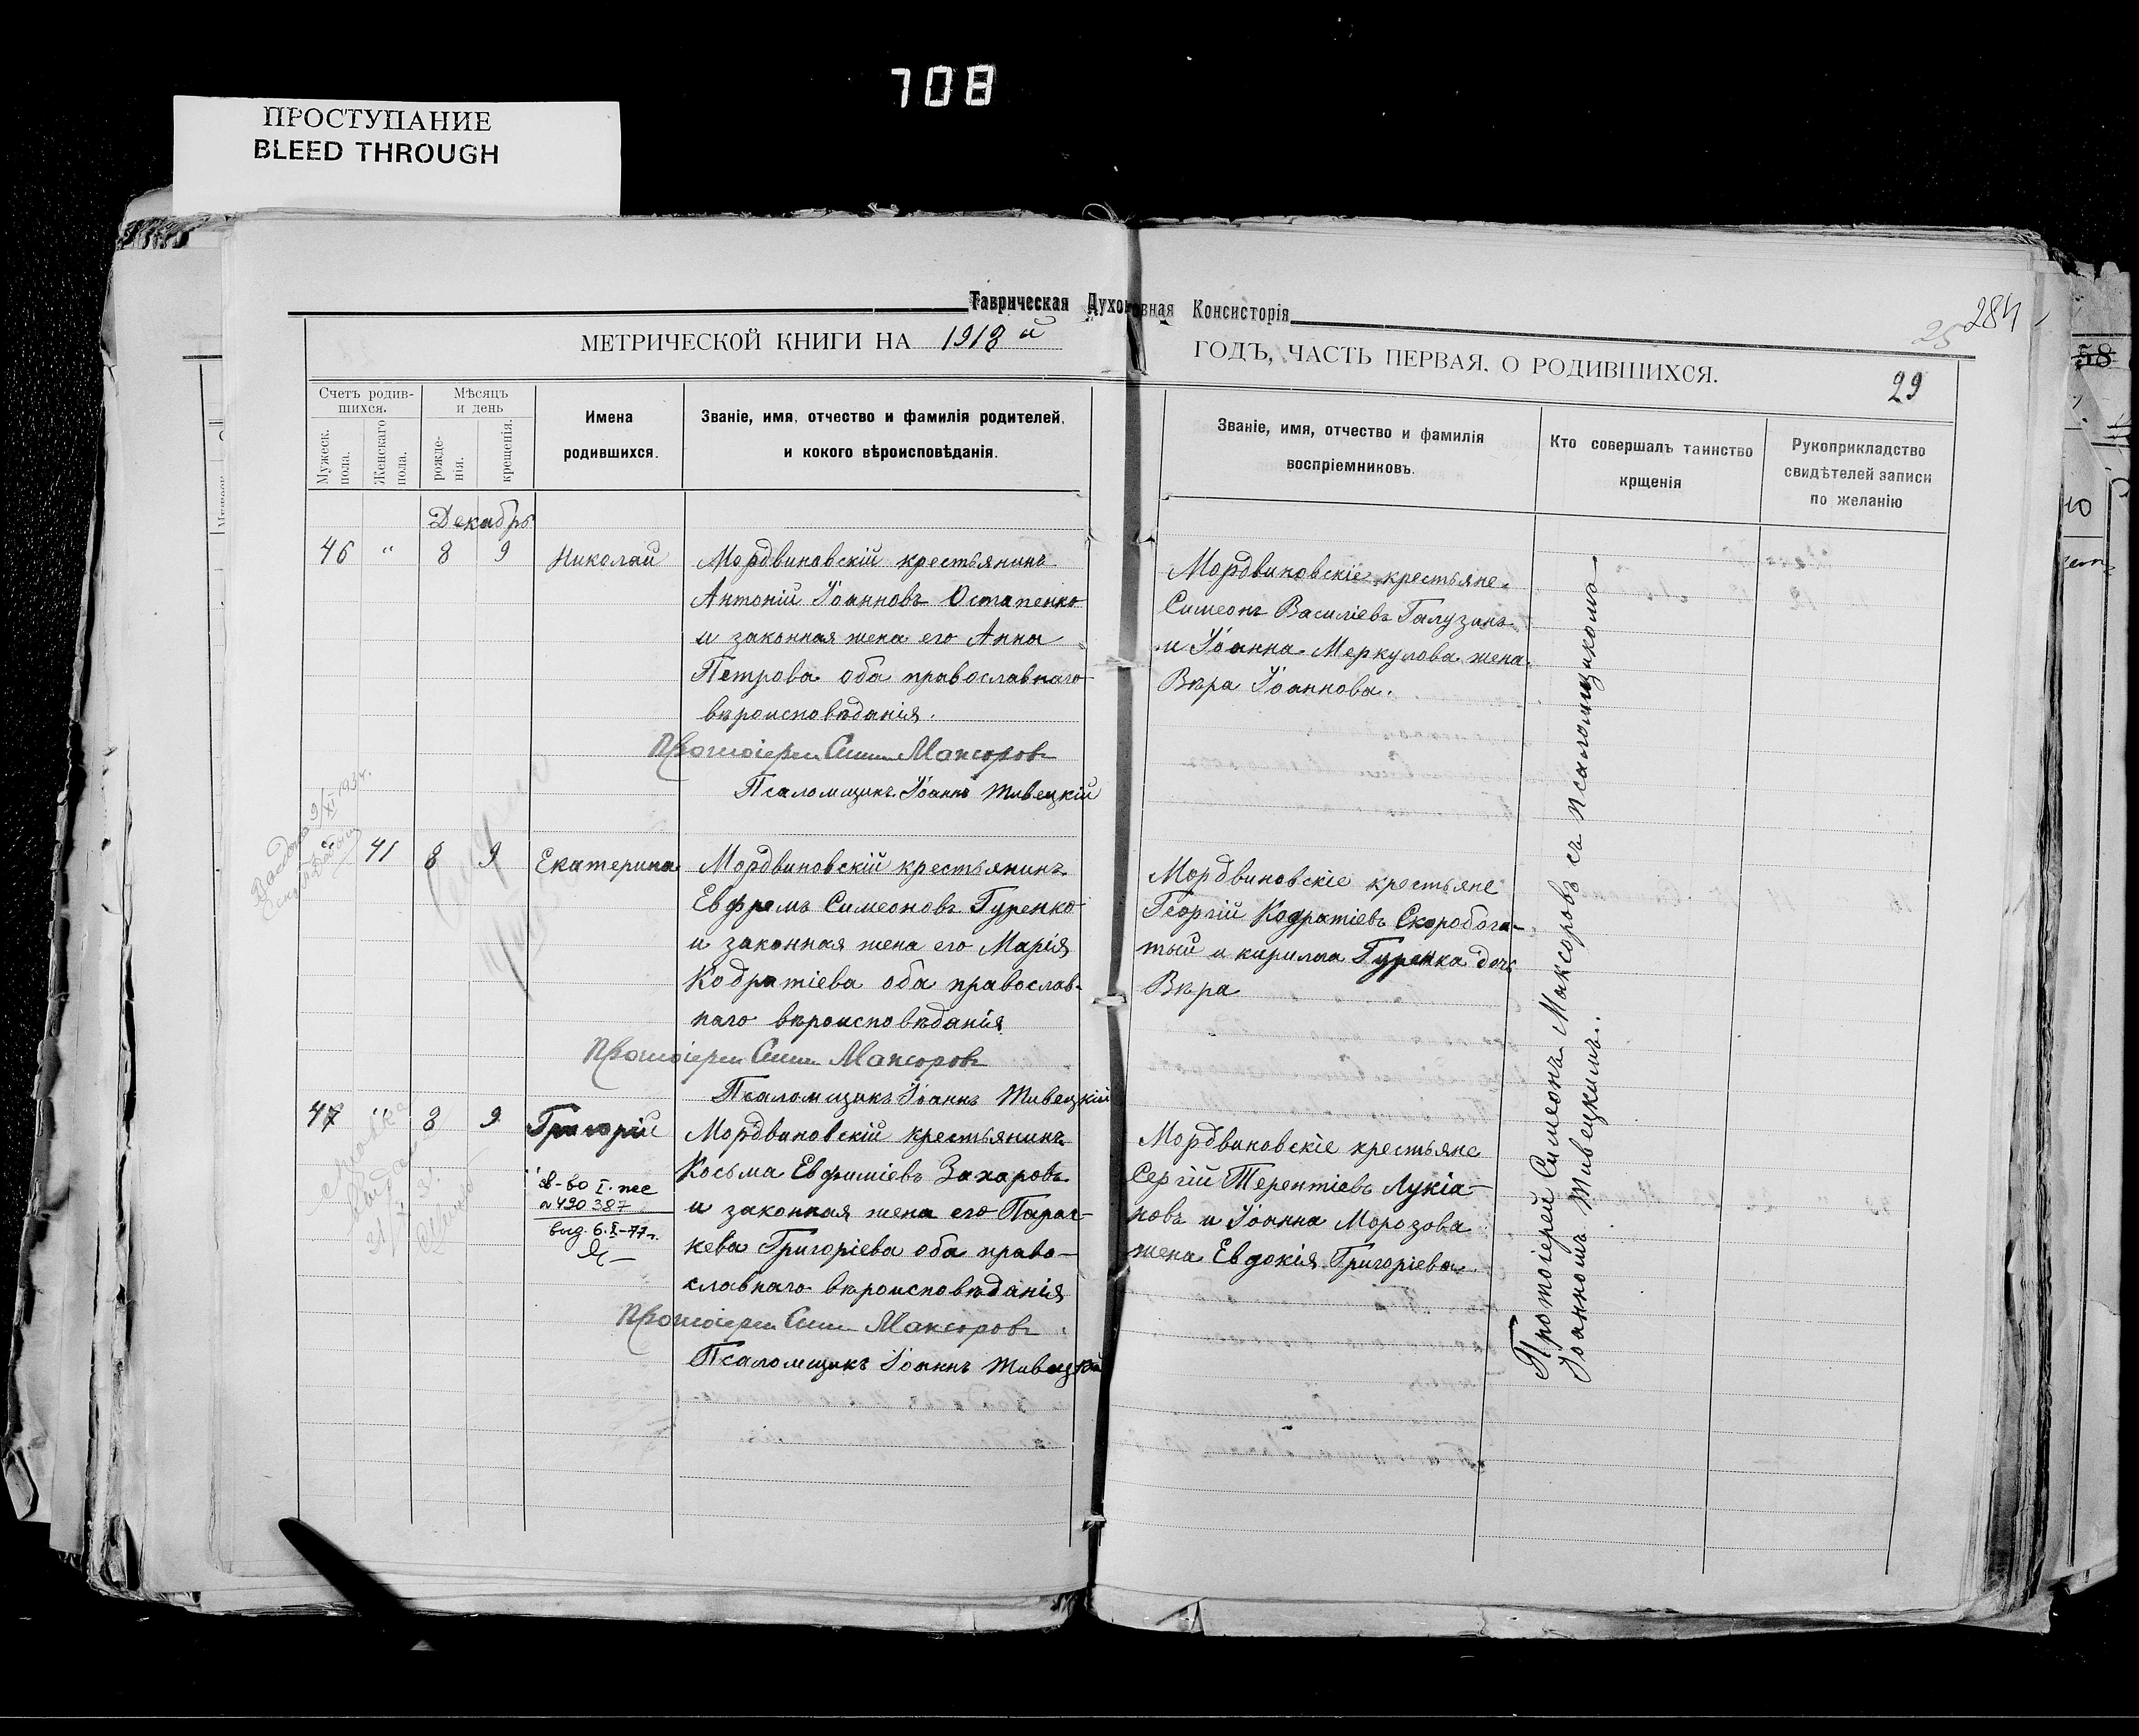 708
ПРОСТУПАНИЕ
BLEED THROUGH
Таврическая Духовная Консисторія
284
25
58
МЕТРИЧЕСКОЙ КНИГИ НА 1918 й
ГОДЪ, ЧАСТЬ ПЕРВАЯ, О РОДИВШИХСЯ.
29
Счетъ родив-
шихся.
Мужеск.
пола.
Женскаго
пола.
Мѣсяцъ
и день
рожде-
нія.
крещенія.
Имена
родившихся.
Званіе, имя, отчество и фамилія родителей,
и кокого вѣроисповѣданія.
Званіе, имя, отчество и фамилія
воспріемниковъ.
Кто совершалъ таинство
крщенія
Рукоприкладство
свидѣтелей записи
по желанію
Декабрь
46 " 8 9 Николай
Мордвиновскій крестьянинъ
Антоній Іоанновъ Остапенко
и законная жена его Анна
Петрова оба православнаго
вѣроисповѣданія.
Протоіерей Симеонъ Максоровъ
Псаломщикъ Іоаннъ Живецкій
Мордвиновскіе крестьяне
Симеонъ Василіевъ Галузинъ
и Іоанна Меркулова жена
Вѣра Іоаннова.
" 41 8 9 Екатерина
Мордвиновскій крестьянинъ
Евфремъ Симеоновъ Гуренко
и законная жена его Марія
Кодратіева оба православ-
наго вѣроисповѣданія
Протоіерей Симеонъ Максоровъ
Псаломщикъ Іоаннъ Живецкій
Мордвиновскіе крестьяне
Георгій Кодратіевъ Скоробога-
тый и кирилла Гуренка дочь
Вѣра
47 " 8 9 Григорій
св-во I-пес
№ 490387
выд. 6.X-77г.
Мордвиновскій крестьянинъ
Косьма Евфиміевъ Захаровъ
и законная жена его Парас-
кева Григоріева оба право-
славнаго вѣроисповѣданія
Протоіерей Симеонъ Максоровъ
Псаломщикъ Іоаннъ Живецкій
Мордвиновскіе крестьяне
Сергій Терентіевъ Лукіа-
новъ и Іоанна Морозова
жена Евдокія Григоріева.
Протоіерей Симеонъ Максоровъ съ псаломщикомъ
Іоанномъ Живецкимъ.